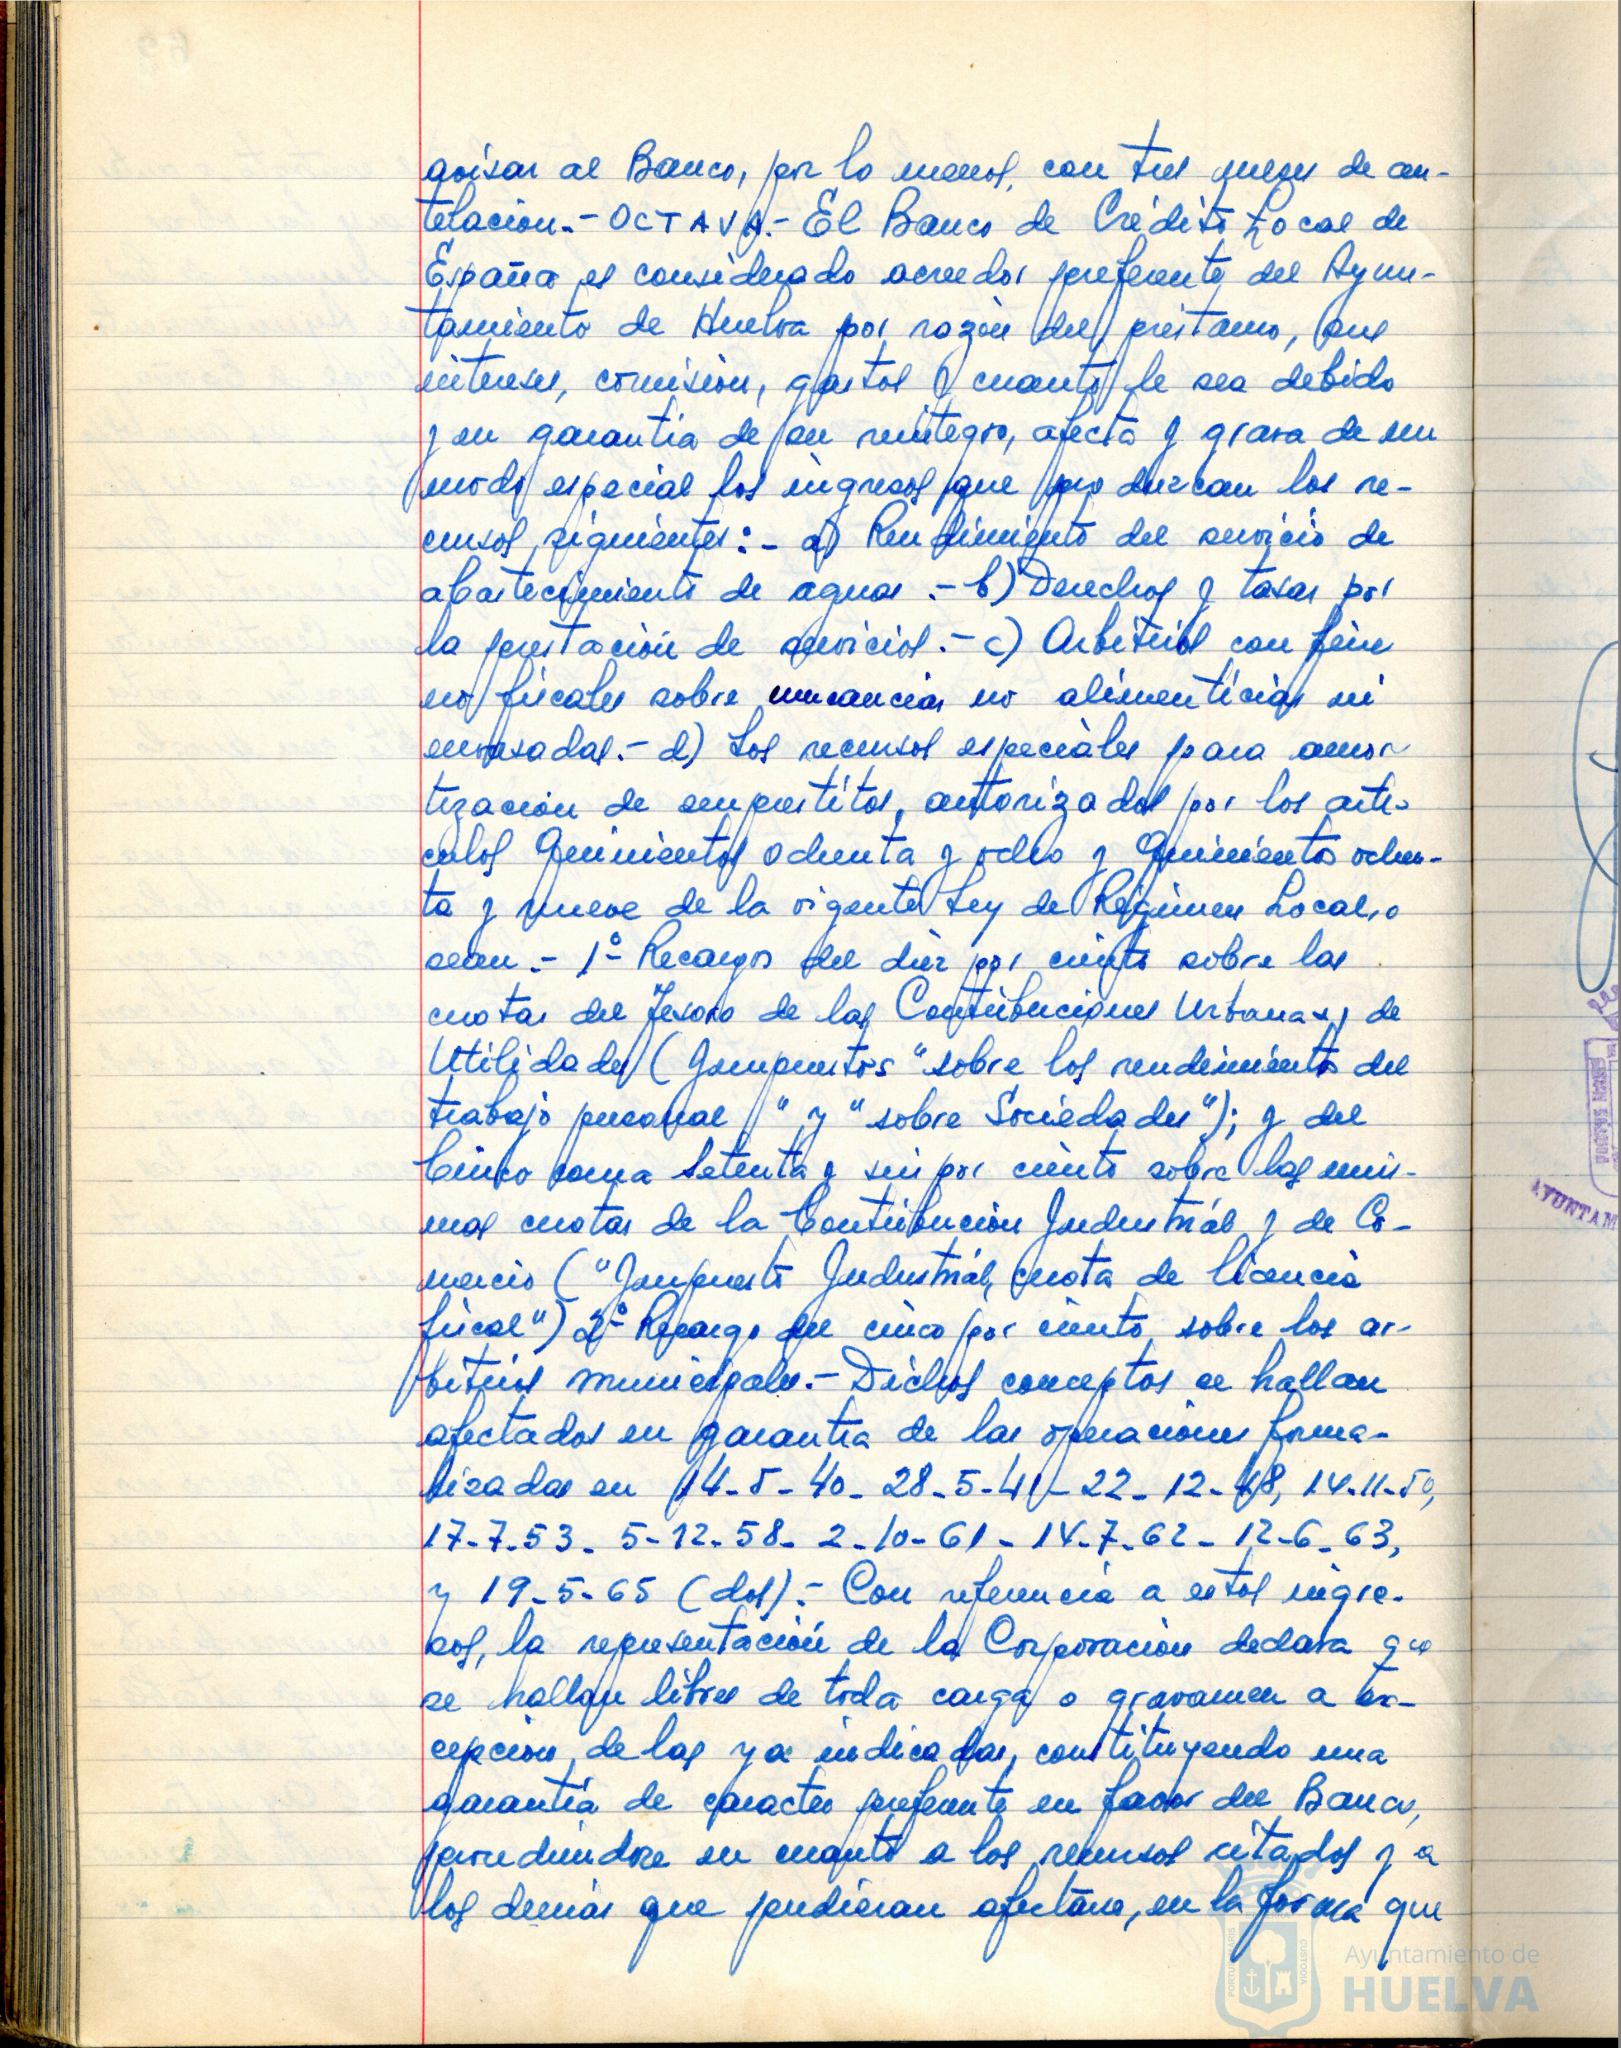 avisar al Banco, por lo menos, con tres meses de an-
telación.- OCTAVA.- El Banco de Crédito Local de
España es considerado acreedor preferente del Ayun-
tamiento de Huelva por razón del prestamo, sus
intereses, comisión, gastos y cuanto le sea debido
y en garantia de su reintegro, afecta y grava de un
modo especial los ingresos que produzcan los re-
cursos siguientes:- a) Rendimiento del servicio de
abastecimiento de aguas.- b) Derechos y tasas por
la prestación de servicios.- c) Arbitrios con fines
no fiscales sobre mercancias no alimenticias ni
envasadas.- d) Los recursos especiales para amor-
tización de emprestitos, autorizados por los artí-
culos Quinientos ochenta y ocho y Quinientos ochen-
ta y nueve de la vigente Ley de Régimen Local, o
sean.- 1º- Recargo del diez por ciento sobre las
cuotas del Tesoro de las Contribuciones Urbanas y de
Utilidades (Impuestos "sobre los rendimientos del
trabajo personal" y "sobre Sociedades"); y del
Cinco coma Setenta y seis por ciento sobre las mis-
mas cuotas de la Contribución Industrial y de Co-
mercio ("Impuesto Industrial, cuota de licencia
fiscal") 2º- Recargo del cinco por ciento sobre los ar-
bitrios municipales.- Dichos conceptos se hallan
afectados en garantia de las operaciones forma-
lizadas en 14-5-40- 28-5-41- 22-12-48, 14-11-50,
17-7-53- 5-12-58- 2-10-61- 14-7-62- 12-6-63,
y 19-5-65 (dos).- Con referencia a estos ingre-
sos, la representación de la Corporación declara que
se hallan libres de toda carga o gravamen a ex-
cepción de las ya indicadas, constituyendo una
garantía de caracter preferente en favor del Banco,
procediendose en cuanto a los recursos citados y a
los demás que pudieran afectarse, en la forma que
PORTUS MARIS
CUSTODIA
Ayuntamiento de
HUELVA
AYUNTAM